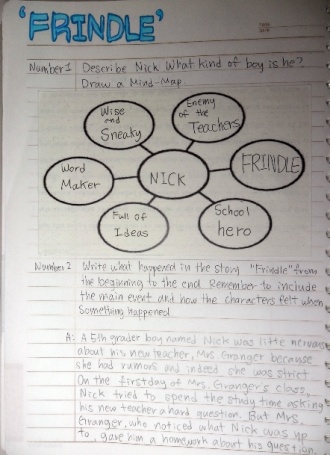 'FRINDLE'
Number 1 Describe Nick What kind of boy is he?
Draw a Mind-Map
Wise
and
Sneaky
Enemy
of the
Teachers
Word
Maker
NICK
FRINDLE
Full of
Ideas
School
hero
Number 2 Write what happened in the story "Frindle" from
the beginning to the end. Remember to include
the main event and how the characters felt when
something happened
A: A 5th grader boy named Nick was little nervous
about his new teacher, Mrs. Granger because
she had rumors and indeed she was strict.
On the first day of Mrs. Granger's class,
Nick tried to spend the study time asking
his new teacher a hard question. But Mrs.
Granger, who noticed what Nick was up
to, gave him a homework about his question.